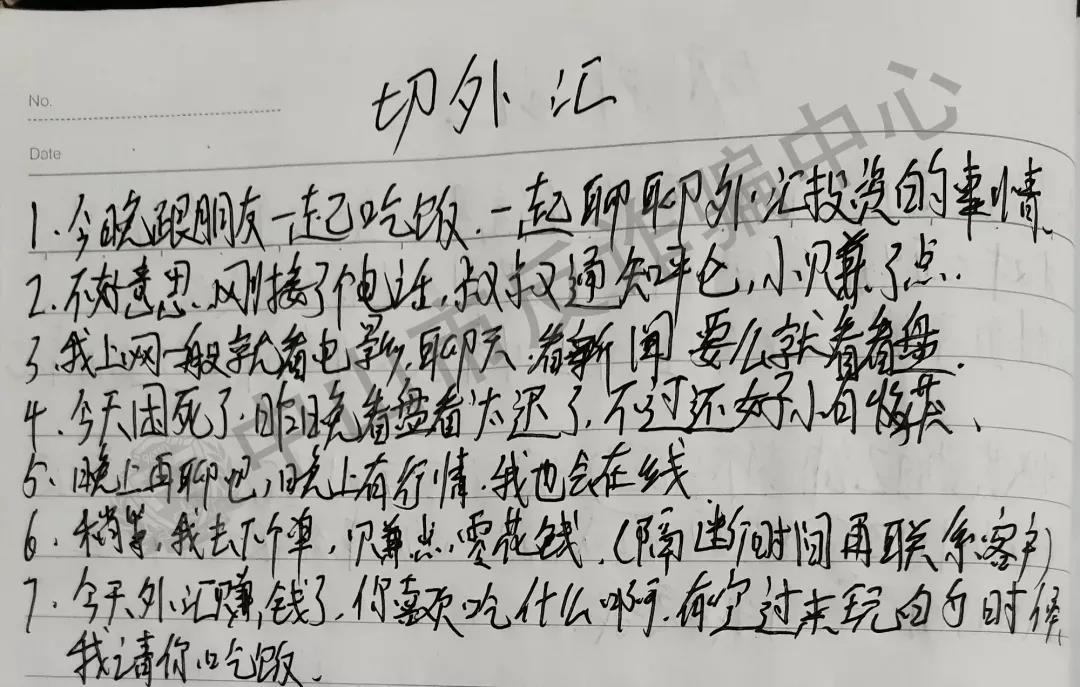 No.
Date
切外汇
1.今晚跟朋友一起吃饭.一起聊聊外汇投资的事情、
2.不好意思.刚接了个电话,叔叔通知平仓,小赚了点.
3.我上网一般就看电影,聊天.看新闻 要么就看看盘.
4.今天困死了.昨晚看盘看太迟了,不过还好小有收获、
5、晚上再聊吧,晚上有行情.我也会在线
6、稍等,我去下个单,赚点零花钱.(隔断时间再联系客户)
7.今天外汇赚钱了.你喜欢吃什么啊.有空过来玩的时候
我请你吃饭.
中山市反诈骗中心